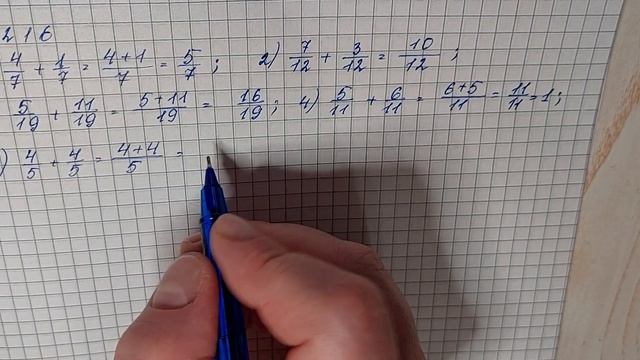 216
4/7 + 1/7 = 4+1/7 = 5/7 ; 2) 7/12 + 3/12 = 10/12 ;
5/19 + 11/19 = 5+11/19 = 16/19 ; 4) 5/11 + 6/11 = 6+5/11 = 11/11 = 1 ;
) 4/5 + 4/5 = 4+4/5 =